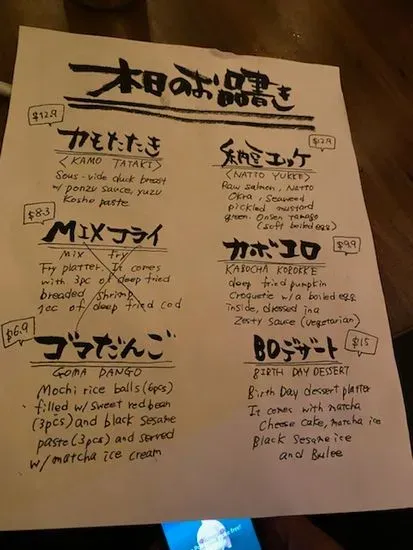 本日のお品書き
$12.9
カモたたき
<KAMO TATAKI>
Sous-vide duck breast
w/ ponzu sauce, yuzu
Kosho paste
$12.9
納豆ユッケ
<NATTO YUKKE>
Raw salmon, Natto
Okra, Seaweed
pickled mustard
green. Onsen Tamago
(Soft boiled egg)
$8.3
MIXフライ
Mix fry
Fry platter. It comes
with 3pc of deep fried
breaded shrimp
1pc of deep fried cod
$9.9
カボコロ
KABOCHA KOROKKE
deep fried pumpkin
Croquette w/ a boiled egg
inside, dressed in a
Zesty Sauce (vegetarian)
$6.9
ゴマだんご
GOMA DANGO
Mochi rice balls (6pcs)
filled w/ sweet red bean
(3pcs) and black sesame
paste (3pcs) and served
w/ matcha ice cream
$15
BDデザート
BIRTH DAY DESSERT
Birth Day dessert platter
It comes with matcha
Cheese cake, matcha ice
Black Sesame ice
and Bulee